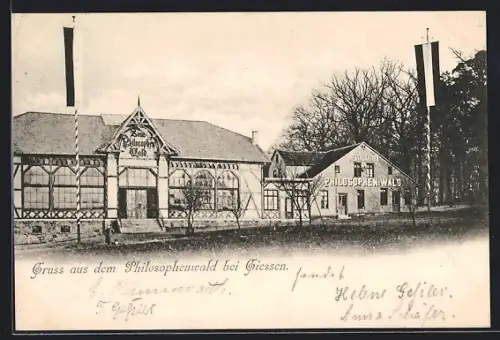 Zum
Philosophen
Wald
RESTAURATION
PHILOSOPHEN-WALD
Gruss aus dem Philosophenwald bei Giessen.
sendet
Helene Geßler.
Anna Schäfer.